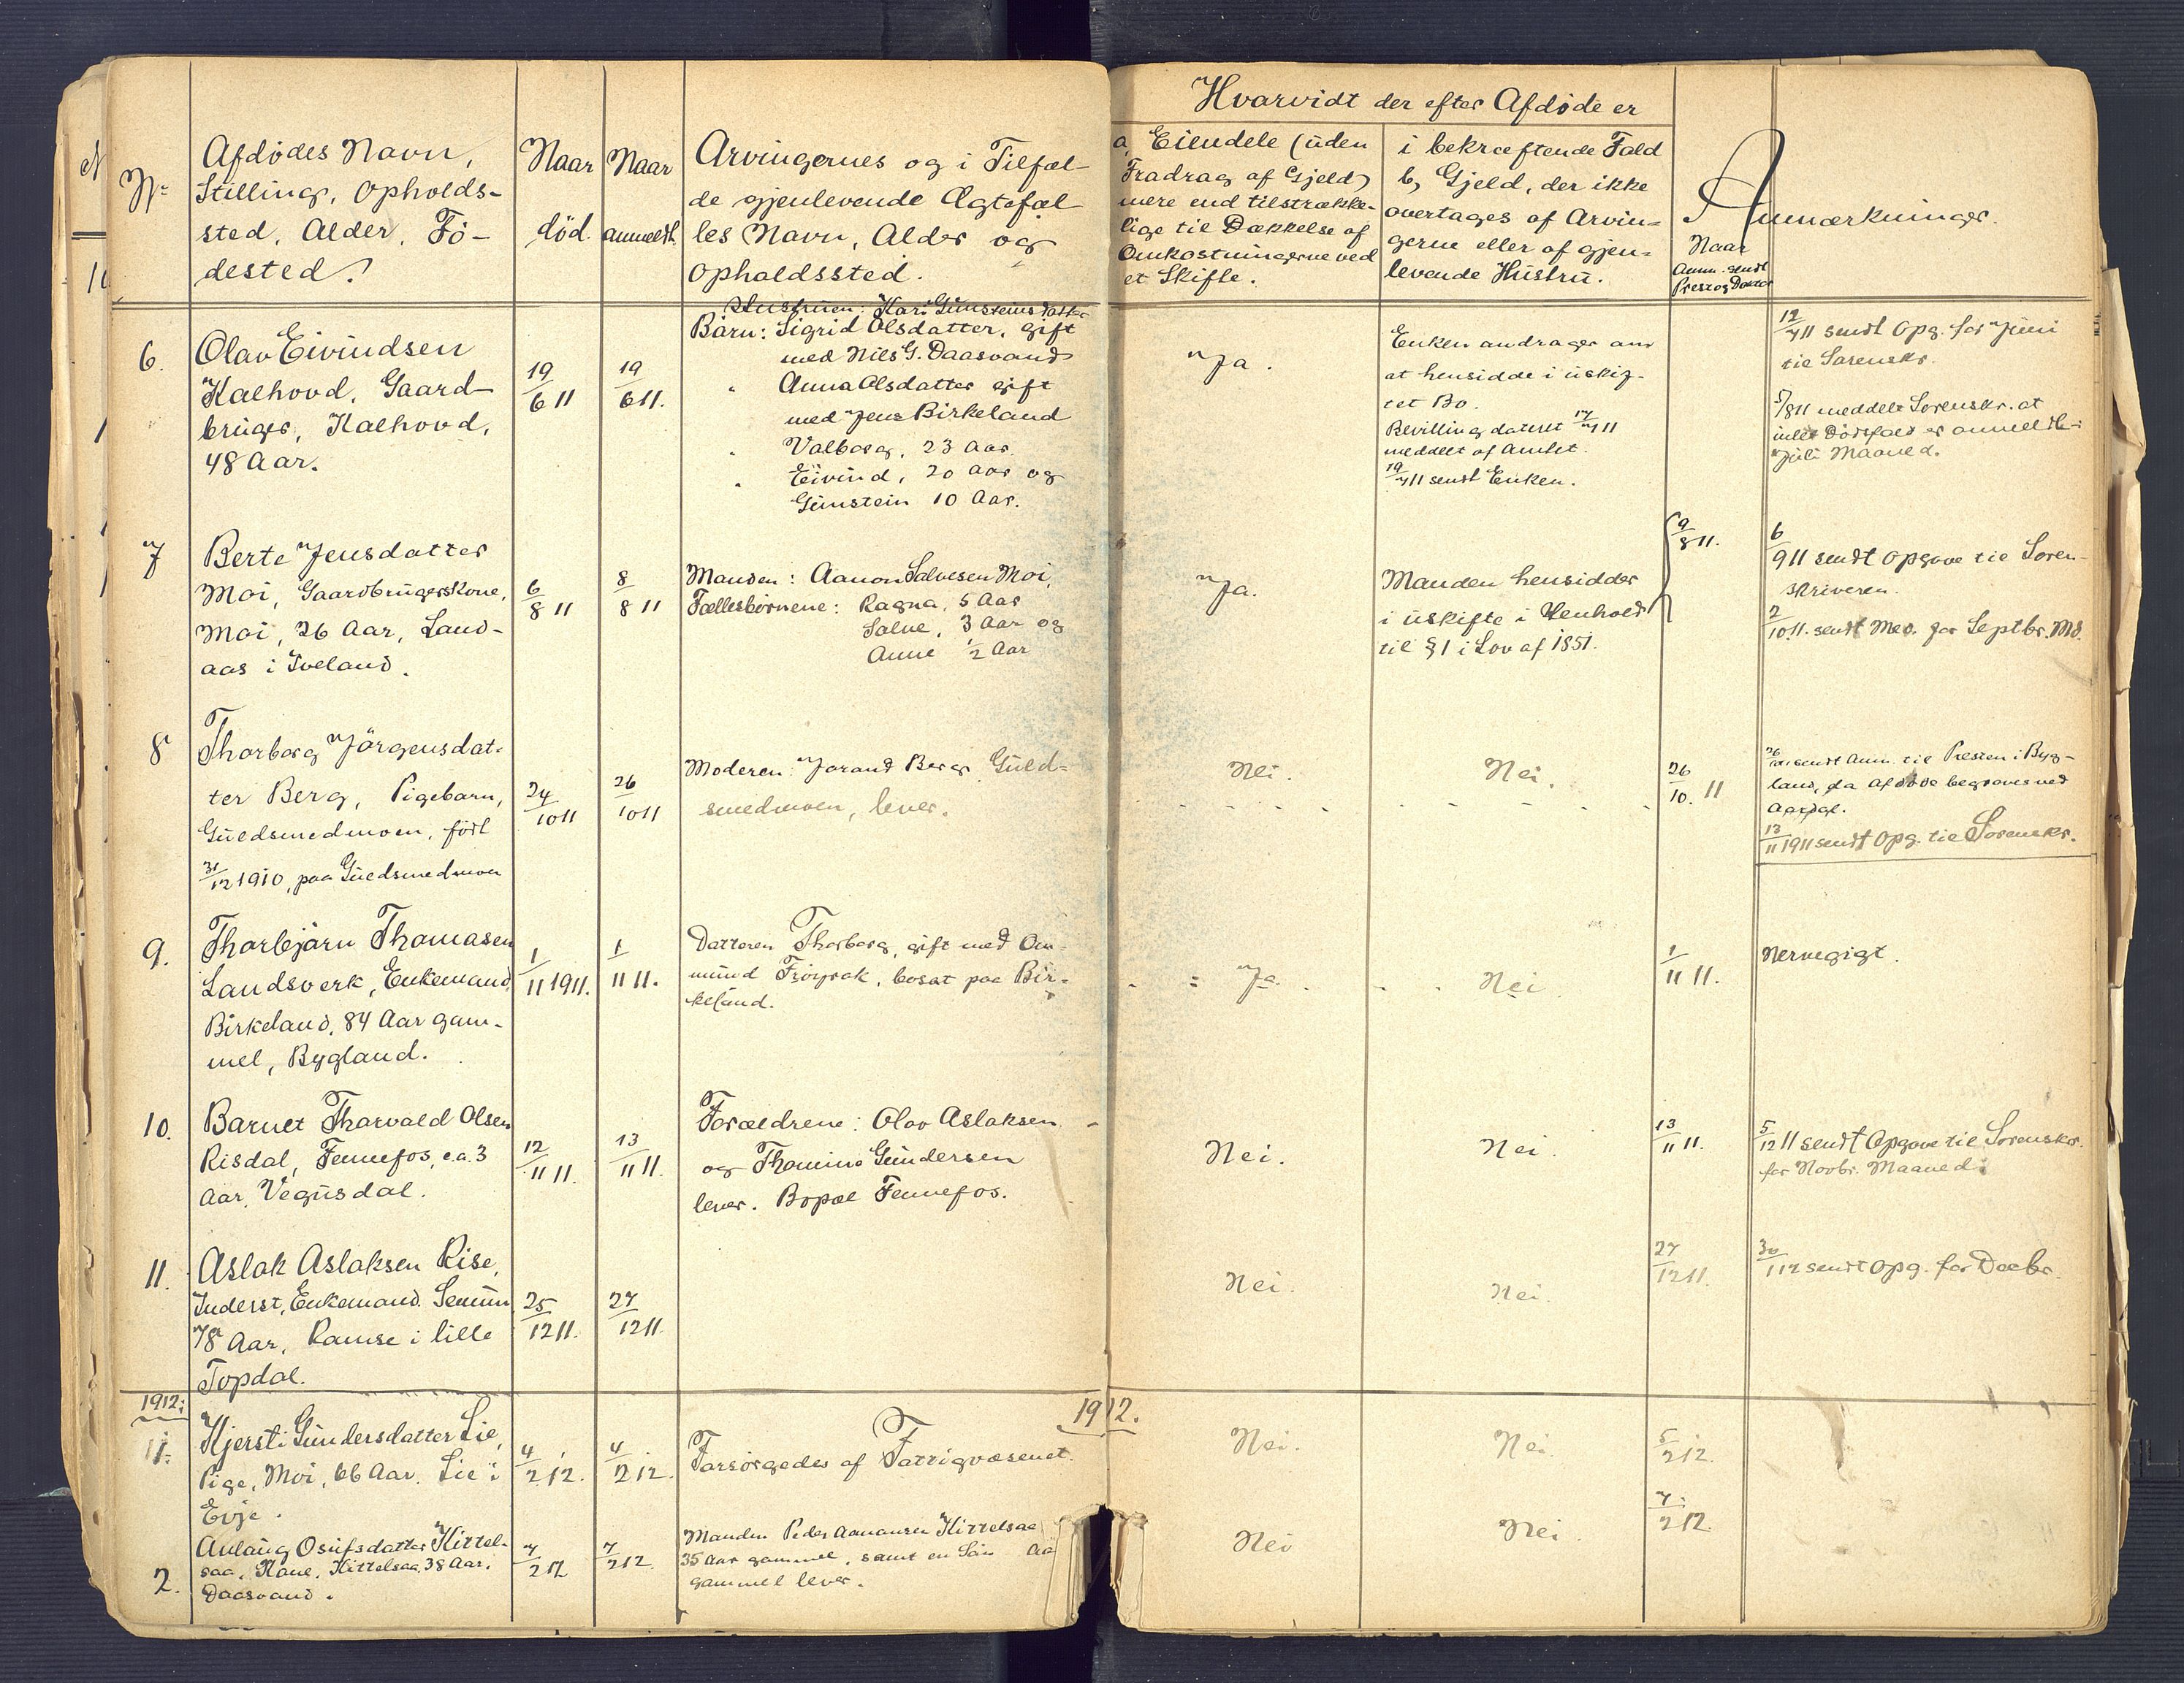 Hvorvidt der efter Afdøde er
No
Afdødes Navn,
Stilling, Opholds-
sted, Alder, Fö-
dested?
Naar
död.
Naar
anmeldt.
Arvingernes og i Tilfæl-
de gjenlevende Ægtefæl-
les Navn, Alder og
Opholdssted.
a, Eiendele (uden
Fradrag af Gjeld)
mere end tilstrække-
lige til Dækkelse af
Omkostningerne ved
et Skifte.
i bekræftende Fald
b, Gjeld, der ikke
overtages af Arvin-
gerne eller af gjen-
levende Hustru.
Anmærkninger.
Naar
Anm. sendt
Prest og Doctor
6.
Olav Eivindsen
Kalhovd, Gaard-
bruger, Kalhovd,
48 Aar.
19/6 11
19/6 11.
Hustruen: Kari Gunsteinsdatter
Børn: Sigrid Olsdatter, gift
med Nils G. Daasvand
" Anna Olsdatter gift
med Jens Birkeland
" Valborg, 23 Aar.
" Eivind, 20 Aar og
Gunstein 10 Aar.
Ja.
Enken andrager om
at hensidde i uskif-
tet Bo.
Bevilling dateret 17/7 11
meddelt af Amtet.
19/7 11 sendt Enken.
12/7 11 sendt Opg. for Juni
til Sorenskr.
5/8 11 meddelt Sorenskr. at
intet Dødsfald er anmeldt i
Juli Maaned.
7
Berte Jensdatter
Moi, Gaardbrugerskone,
Moi, 26 Aar, Land-
aas i Iveland.
6/8 11
8/8 11
Manden: Aanon Salvesen Moi,
Fællesbørnene: Ragna, 5 Aar
Salve, 3 Aar og
Anne 1/2 Aar
Ja.
Manden hensidder
i uskifte i Henhold
til § 1 i Lov af 1851.
9/8 11.
6/9 11 sendt Opgave til Soren-
skriveren.
2/10 11. sendt Med. for Septbr. Md.
8
Thorborg Jörgensdat-
ter Berg, Pigebarn,
Guldsmedmoen, født
31/12 1910, paa Guldsmedmoen
24/10 11
26/10 11
Moderen: Jorand Berg, Guld-
smedmoen, lever.
Nei.
Nei.
26/10. 11
26/10 11 sendt Anm. til Presten i Byg-
land, da Afdøde begraves ved
Aardal.
13/11 1911 sendt Opg. til Sorenskr.
9.
Thorbjörn Thomasen
Landsverk, Enkemand,
Birkeland, 84 Aar gam-
mel, Bygland.
1/11 1911.
1/11 11.
Datteren Thorborg, gift med Om-
mund Frøyrak, bosat paa Bir-
keland.
Ja.
Nei
1/11 11.
Nervegigt.
10.
Barnet Thorvald Olsen
Risdal, Fennefos, ca. 3
Aar, Vegusdal.
12/11 11.
13/11 11.
Forældrene: Olav Aslaksen
og Thomine Gundersen
lever. Bopæl Fennefos.
Nei.
Nei.
13/11 11.
5/12 11 sendt Opgave til Sorenskr.
for Novbr. Maaned.
11.
Aslak Aslaksen Rise,
Inderst, Enkemand.
78 Aar, Ramse i lille
Topdal.
25/12 11.
27/12 11.
Nei.
Nei.
27/12 11.
30/1 12 sendt Opg. for Decbr.
1912:
1912.
1.
Kjersti Gundersdatter Lie,
Pige, Moi, 66 Aar. Lie i
Evje.
4/2 12.
4/2 12.
Forsørgedes af Fattigvæsenet.
Nei.
Nei.
5/2 12.
2.
Aulaug Osufsdatter Kittel-
saa, Kone, Kittelsaa, 38 Aar,
Daasvand.
7/2 12
7/2 12.
Manden Peder Aanonsen Kittelsaa
35 Aar gammel, samt en Søn Aar
gammel lever.
Nei
Nei
7/2 12